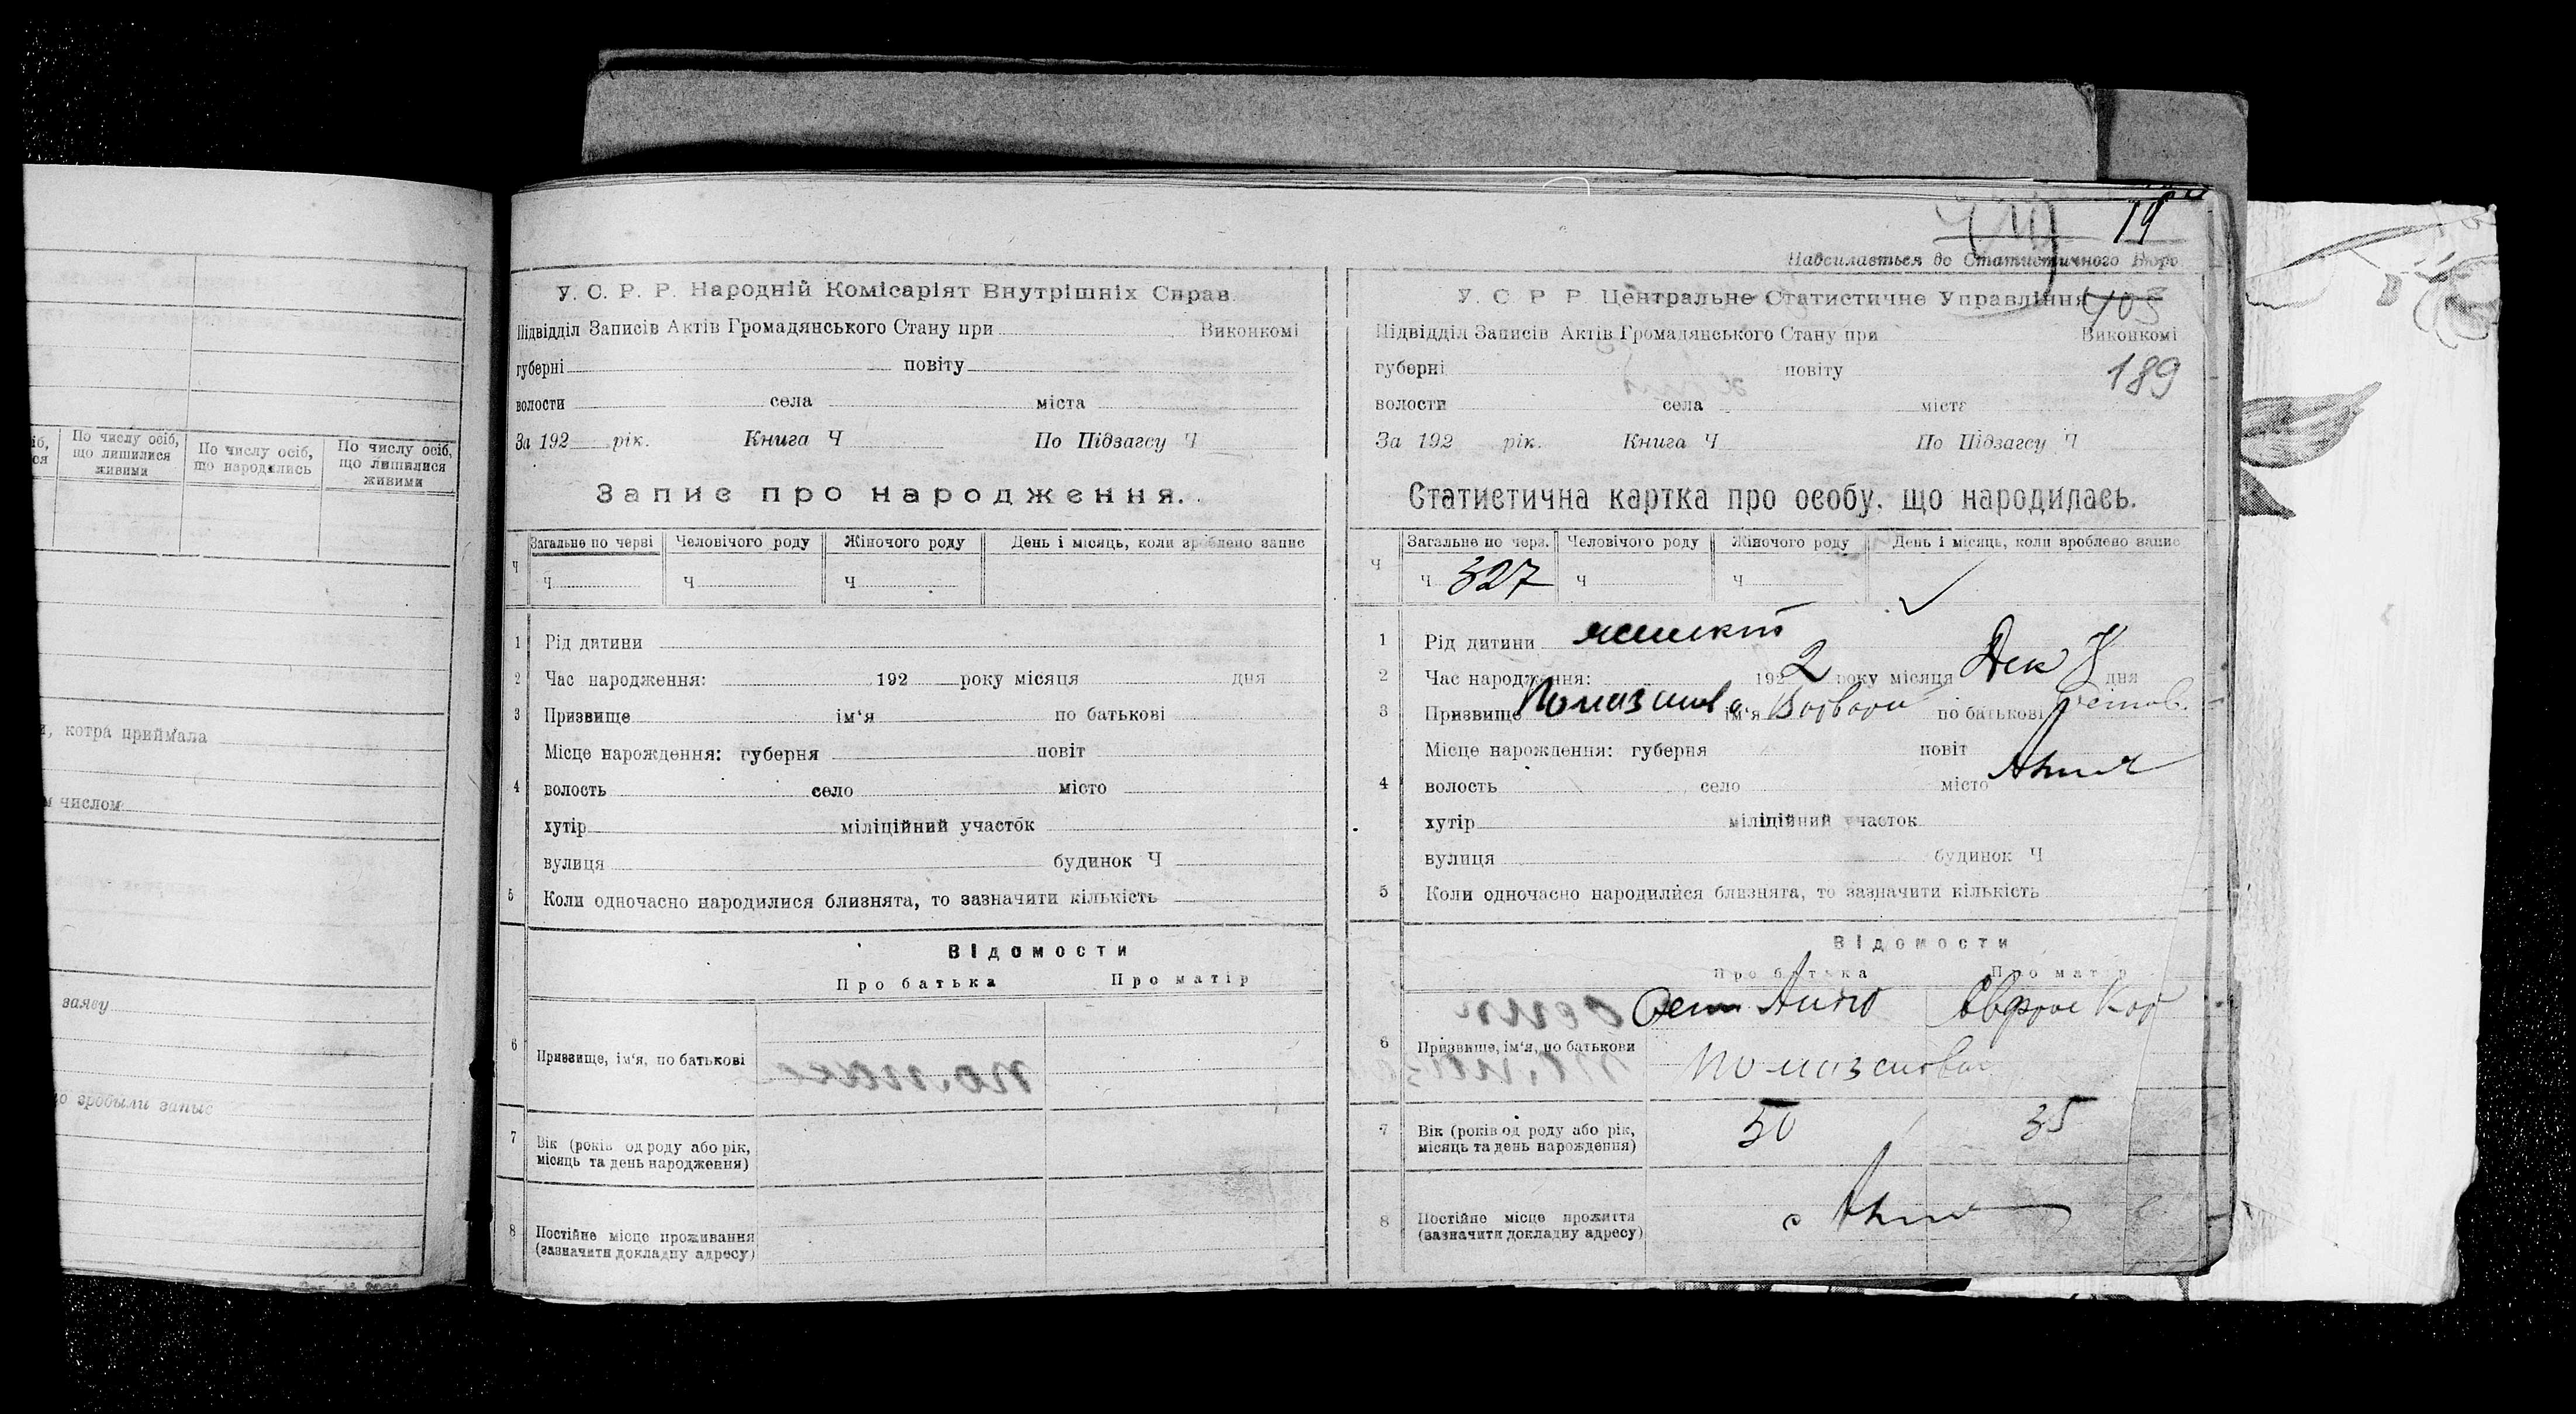 19
Надсилається до Статистичного Бюро
іб, ся
По числу осіб, що лишилися живими
По числу осіб, що народились
По числу осіб, що лишилися живими
, котра приймала
м числом
заяву
зробыли запыс
У. С. Р. Р. Народній Комісаріят Внутрішніх Справ
Підвідділ Записів Актів Громадянського Стану при Виконкомі
губерні повіту
волости села міста
За 192 рік. Книга Ч По Підзагсу Ч
Запис про народження.
Ч Загальне по черві Человічого роду Жіночого роду День і місяць, коли зроблено запис
Ч Ч Ч
1 Рід дитини
2 Час народження: 192 року місяця дня
3 Призвище ім'я по батькові
Місце нарождення: губерня повіт
4 волость село місто
хутір міліційний участок
вулиця будинок Ч
5 Коли одночасно народилися близнята, то зазначити кількість
Відомости
Про батька Про матір
6 Призвище, ім'я, по батькові
7 Вік (років од роду або рік,
місяць та день народження)
8 Постійне місце проживання
(зазначити докладну адресу)
У. С. Р. Р. Центральне Статистичне Управління
403
Підвідділ Записів Актів Громадянського Стану при Виконкомі
губерні повіту 189
волости села міста
За 192 рік. Книга Ч По Підзагсу Ч
Статистична картка про особу, що народилась.
Ч Загальне по черв. Человічого роду Жіночого роду День і місяць, коли зроблено запис
Ч 327 Ч Ч
1 Рід дитини
2 Час народження: 192 2 року місяця Дек дня
3 Призвище ім'я по батькові
Місце нарождення: губерня повіт
4 волость село місто
хутір міліційний участок
вулиця будинок Ч
5 Коли одночасно народилися близнята, то зазначити кількість
Відомости
Про батька Про матір
6 Призвище, ім'я, по батькови
7 Вік (років од роду або рік,
місяць та день нарождення)
50 35
8 Постійне місце прожиття
(зазначити докладну адресу)